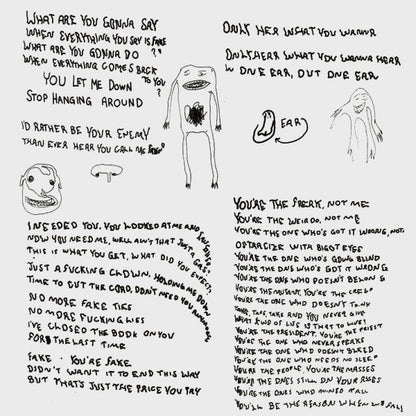 WHAT ARE YOU GONNA SAY
WHEN EVERYTHING YOU SAY IS FAKE
WHAT ARE YOU GONNA DO ?
WHEN EVERYTHING COMES BACK
TO YOU ?
YOU LET ME DOWN
STOP HANGING AROUND
I'D RATHER BE YOUR ENEMY
THAN EVER HEAR YOU CALL ME
ONLY HER WHAT YOU WANNA
ONLY HEAR WHAT YOU WANNA HEAR
IN ONE EAR, OUT ONE EAR
EAR
I NEEDED YOU, YOU LOOKED AT ME AND
NOW YOU NEED ME, WELL AIN'T THAT JUST A GAS?
THIS IS WHAT YOU GET, WHAT DID YOU EXPECT,
JUST A FUCKING CLOWN, HOLDING ME DOWN
TIME TO CUT THE CORD, DON'T NEED YOU
NO MORE FAKE TIES
NO MORE FUCKING LIES
I'VE CLOSED THE BOOK ON YOU
FOR THE LAST TIME
FAKE - YOU'RE FAKE
DIDN'T WANT IT TO END THIS WAY
BUT THAT'S JUST THE PRICE YOU PAY
YOU'RE THE FREAK, NOT ME
YOU'RE THE WEIRDO, NOT ME
YOU'RE THE ONE WHO'S GOT IT WRONG, NOT
WITH BIGOT EYES
YOU'RE THE ONE WHO'S GOING BLIND
YOU'RE THE ONE WHO'S GOT IT WRONG
YOU'RE THE ONE WHO DOESN'T BELONG
YOU'RE THE MUTANT, YOU'RE THE CREEP
YOU'RE THE ONE WHO DOESN'T THINK
TAKE, TAKE AND YOU NEVER GIVE
WHAT KIND OF LIFE IS THAT TO LIVE?
YOU'RE THE PRESIDENT, YOU'RE THE PRIEST
YOU'RE THE ONE WHO NEVER SPEAKS
YOU'RE THE ONE WHO DOESN'T BLEED
YOU'RE THE ONE WHO NEEDS NO SLEEP
YOU'RE THE PEOPLE, YOU'RE THE MASSES
YOU'RE THE ONES STILL ON YOUR ASSES
YOU'RE THE ONES WHO RUINED IT ALL
YOU'LL BE THE REASON WHEN WE FALL